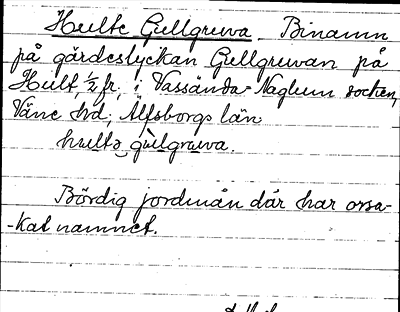 Hulte Gullgruva. Binamn
på gärdeslyckan Gullgruvan på
Hult, ½ fr, i Vassända-Naglum socken,
Väne hd, Älfsborgs län
hultə gulgruva.
Bördig jordmån där har orsa-
-kat namnet.